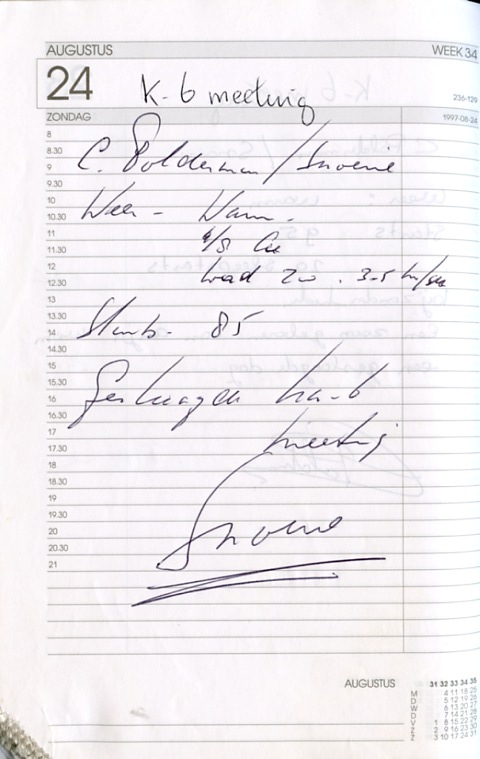 AUGUSTUS WEEK 34
24 K-6 meeting 236-129
ZONDAG 1997-08-24
8
8.30 C. Polderman / Snoeie
9
9.30
10 Weer - Warm.
10.30
11 6/8 Cu
11.30
12 wad ZW . 3-5 m/sec
12.30
13
13.30 Starts - 85
14
14.30
15
15.30 Geslaagde ka-6
16
16.30
17 meeting
17.30
18
18.30
19
19.30
20 Snoeie
20.30
21
AUGUSTUS 31 32 33 34 35
M 4 11 18 25
D 5 12 19 26
W 6 13 20 27
D 7 14 21 28
V 1 8 15 22 29
Z 2 9 16 23 30
Z 3 10 17 24 31